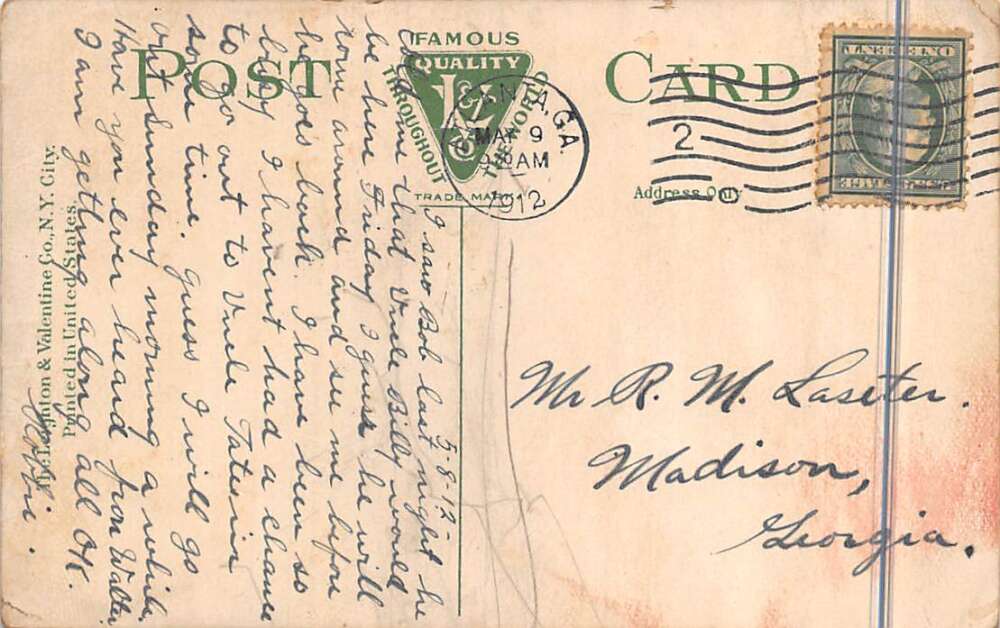 POST CARD
FAMOUS
QUALITY
L&V
Co
THROUGHOUT
THE WORLD
TRADE MARK
ANTA, GA.
MAR 9
AM
1912
2
ONE CENT
Address Only
Mr R. M. Laseter.
Madison,
Georgia.
5-8-12
I saw Bob last night he
told me that Uncle Billy would
be here Friday I guess he will
come around and see me before
he goes back. I have been so
busy I havent had a chance
to go out to Uncle Tates in
some time. Guess I will go
out Sunday morning a while.
Have you ever heard from Walter
I am getting along all OK.
Leighton & Valentine Co., N.Y. City.
Printed in United States.